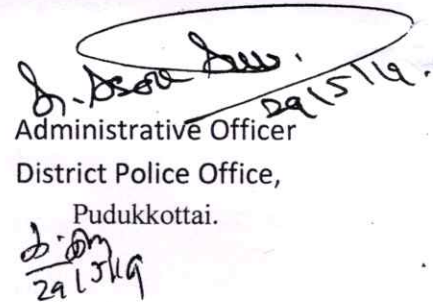 29/5/19.
Administrative Officer
District Police Office,
Pudukkottai.
29/5/19